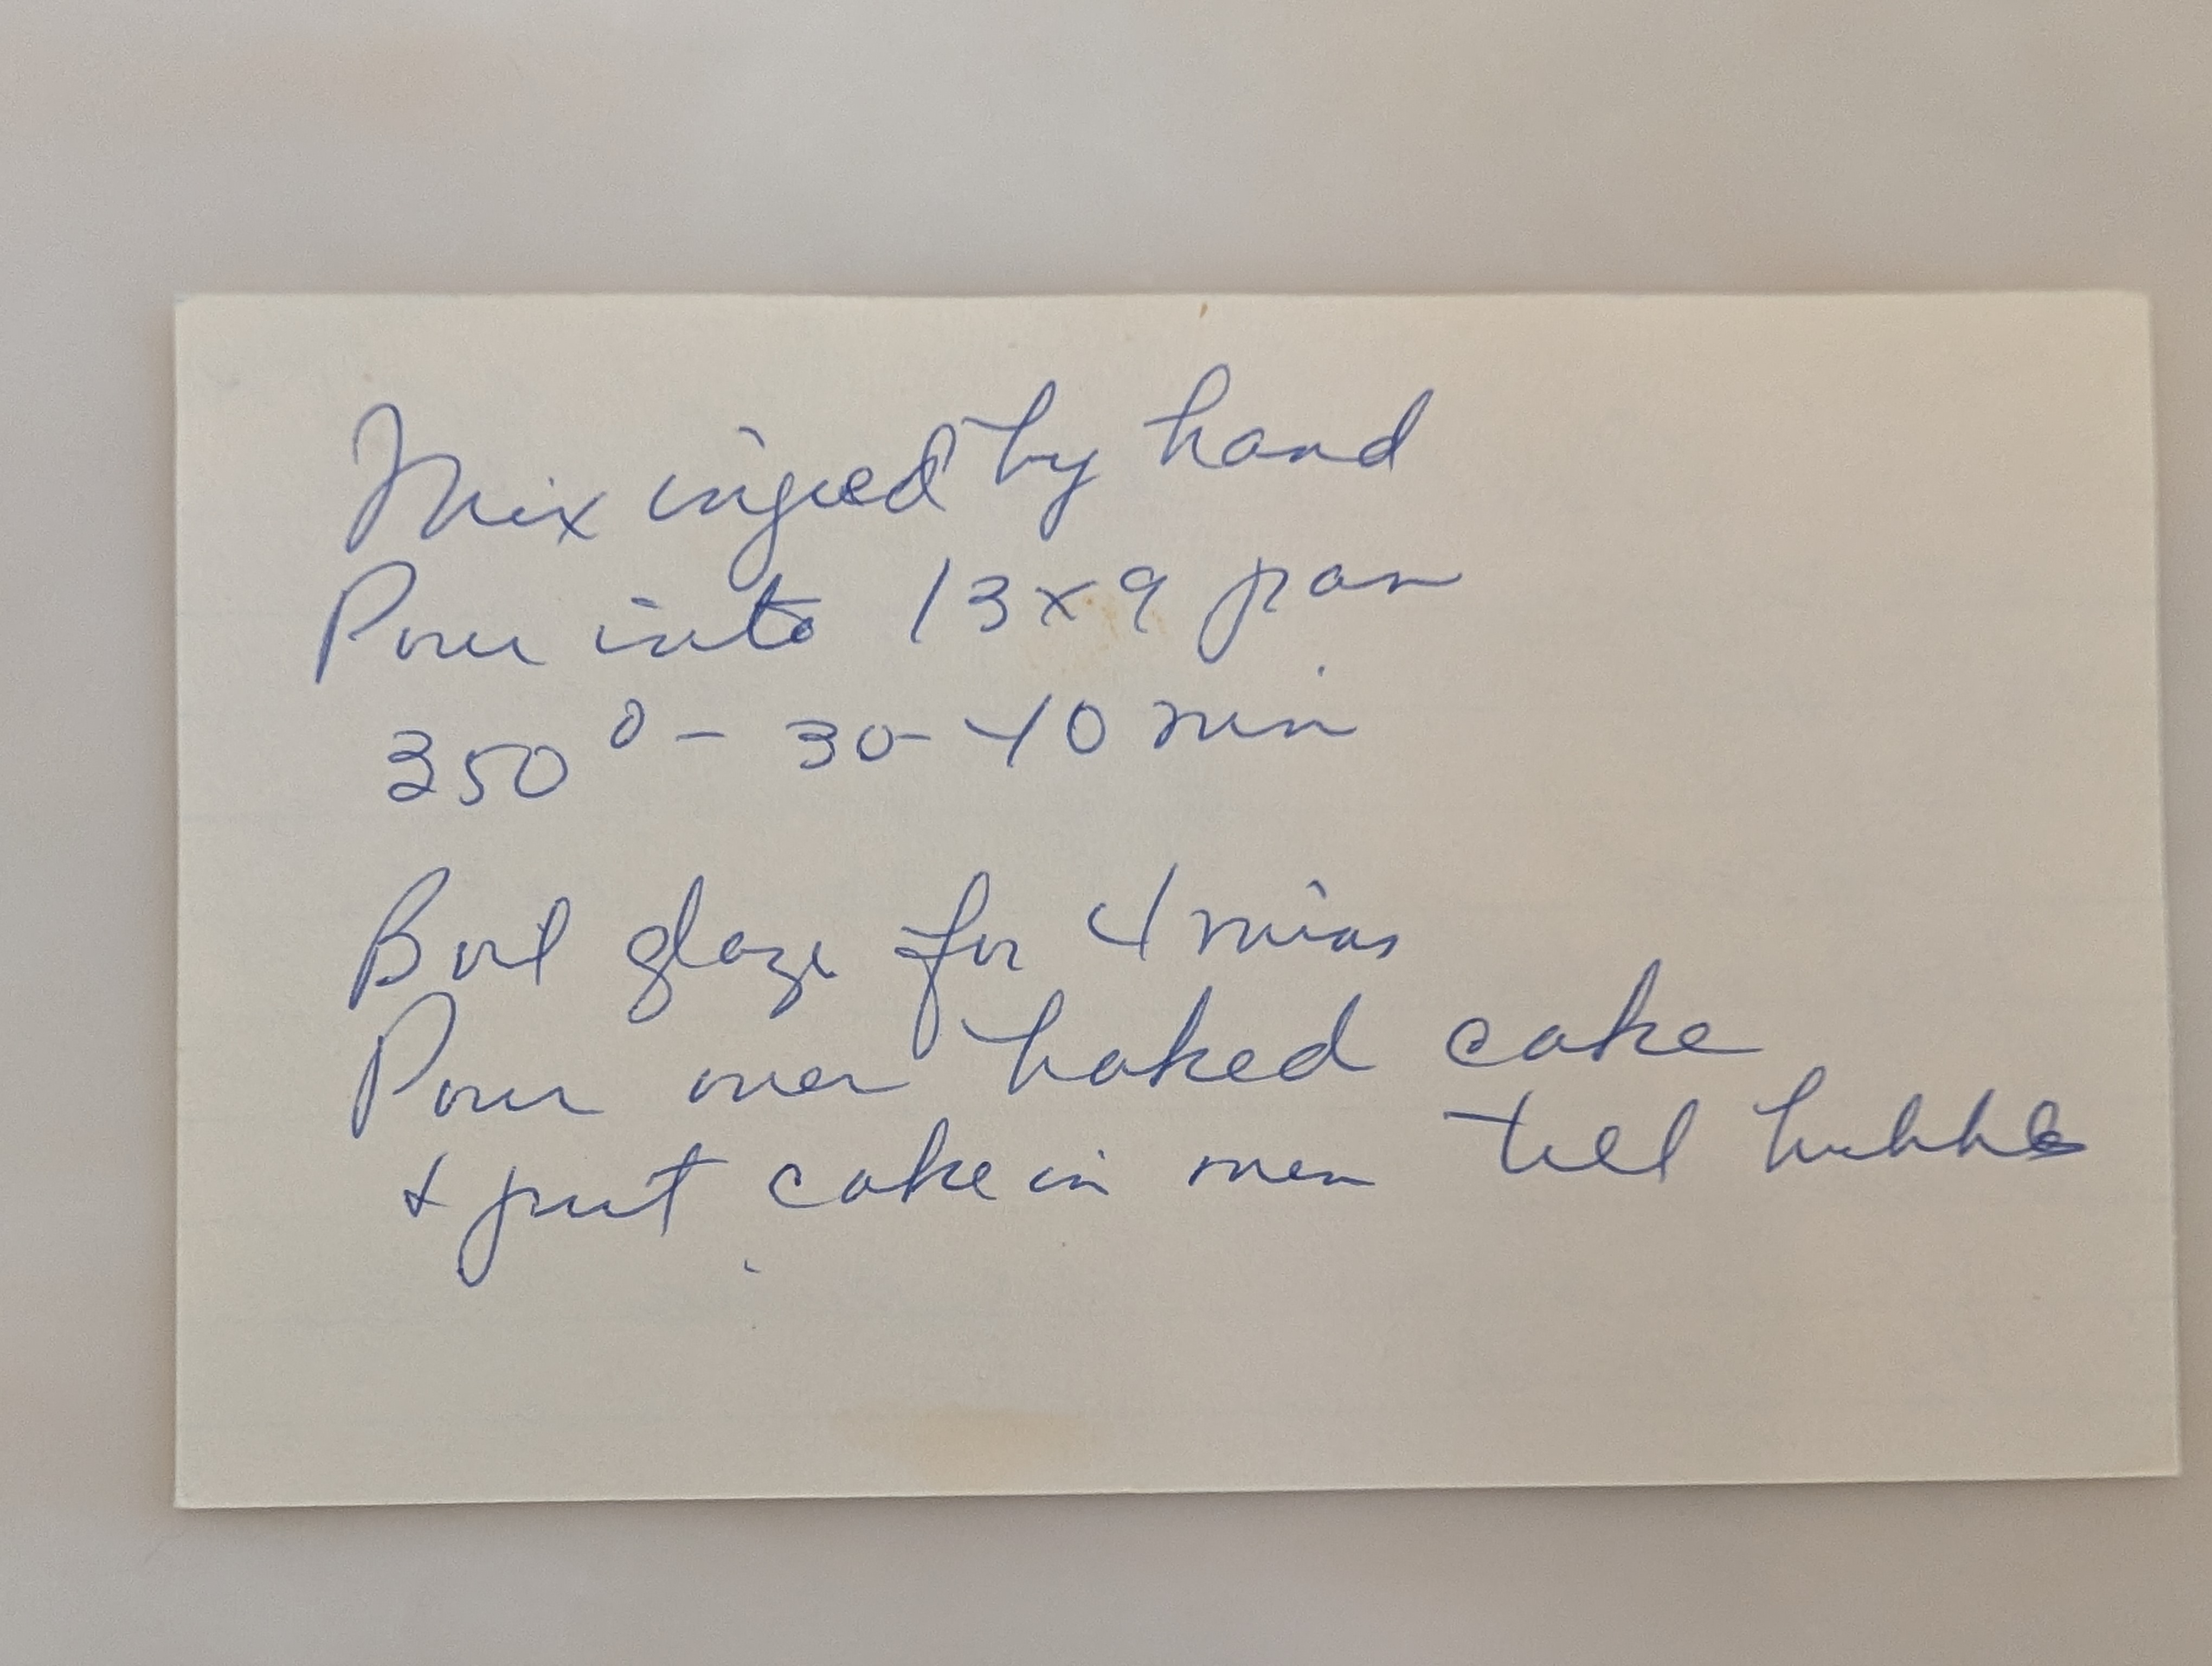 Mix ingred by hand
Pour into 13x9 pan
350° - 30-40 min
Boil glaze for 4 mins
Pour over baked cake
+ put cake in oven till bubbles